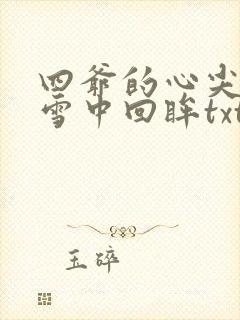 四爷的心尖
雪中回眸txt
玉碎